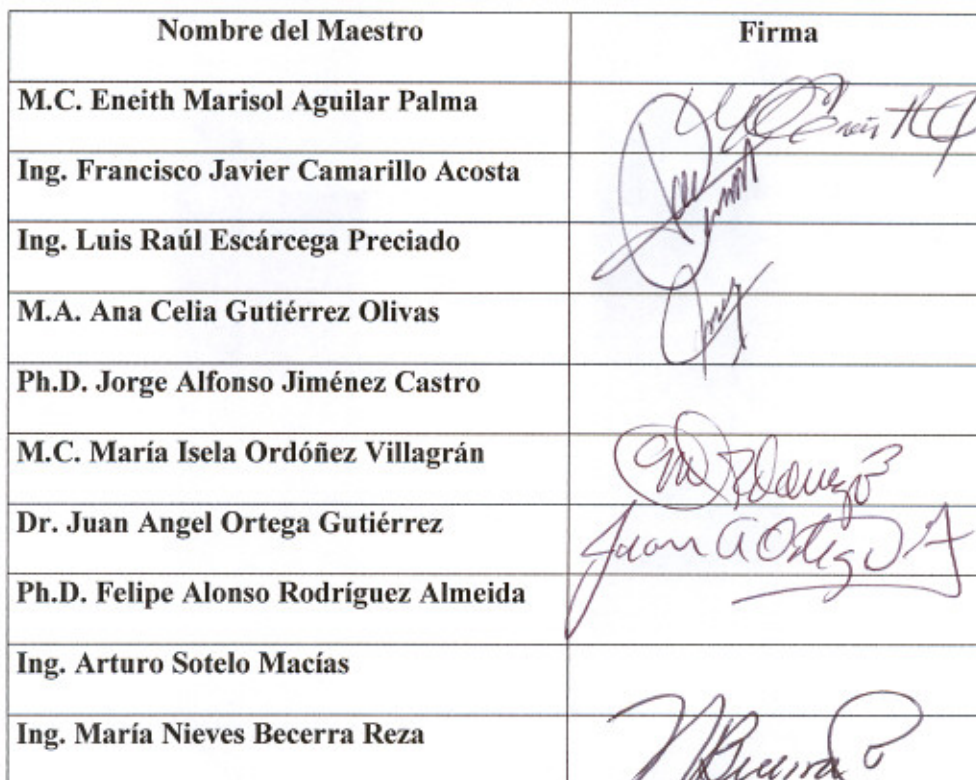 Nombre del Maestro Firma
M.C. Eneith Marisol Aguilar Palma
Ing. Francisco Javier Camarillo Acosta
Ing. Luis Raúl Escárcega Preciado
M.A. Ana Celia Gutiérrez Olivas
Ph.D. Jorge Alfonso Jiménez Castro
M.C. María Isela Ordóñez Villagrán
Dr. Juan Angel Ortega Gutiérrez Juan A Ortega
Ph.D. Felipe Alonso Rodríguez Almeida
Ing. Arturo Sotelo Macías
Ing. María Nieves Becerra Reza